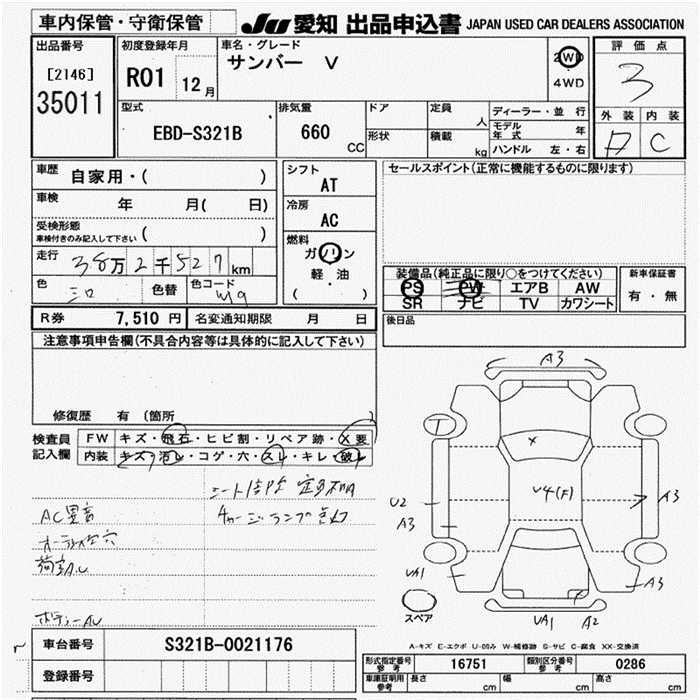 車内保管・守衛保管 JU 愛知 出品申込書 JAPAN USED CAR DEALERS ASSOCIATION
出品番号 初度登録年月 車名・グレード
[2146] R01 12月 サンバー V 2WD
35011 4WD
評価点
3
外装 内装
C
型式 排気量 ドア 定員 人 ディーラー・並行
EBD-S321B 660 CC 形状 積載 kg モデル年式 年
ハンドル 左・右
車歴 自家用・( ) シフト AT
車検 年 月( 日) 冷房 AC
受検形態 車検付きのみ記入して下さい ( )
燃料 ガソリン
軽・油
( )
走行 38万2千527km
色 色替 色コード
R券 7,510円 名変通知期限 月 日
セールスポイント(正常に機能するものに限ります)
装備品(純正品に限り○をつけてください) 新車保証書
PS PW エアB AW 有・無
SR ナビ TV カワシート
後日品
注意事項申告欄(不具合内容等は具体的に記入して下さい)
修復歴 有 (箇所 )
検査員記入欄 FW キズ・飛石・ヒビ割・リペア跡・X要
内装 キズ・汚レ・コゲ・穴・スレ・キレ・破レ
チャージランプ点灯
AC異音
ボディーAU
A3
T
U2
A3
U4(F)
A3
UA1
A3
スペア
UA1 A2
車台番号 S321B-0021176
登録番号
A-キズ E-エクボ U-凹み W-補修跡 S-サビ C-腐食 XX-交換済
形式指定番号 参考 16751 類別区分番号 参考 0286
車庫証明用 参考 長さ cm 幅 cm 高さ cm